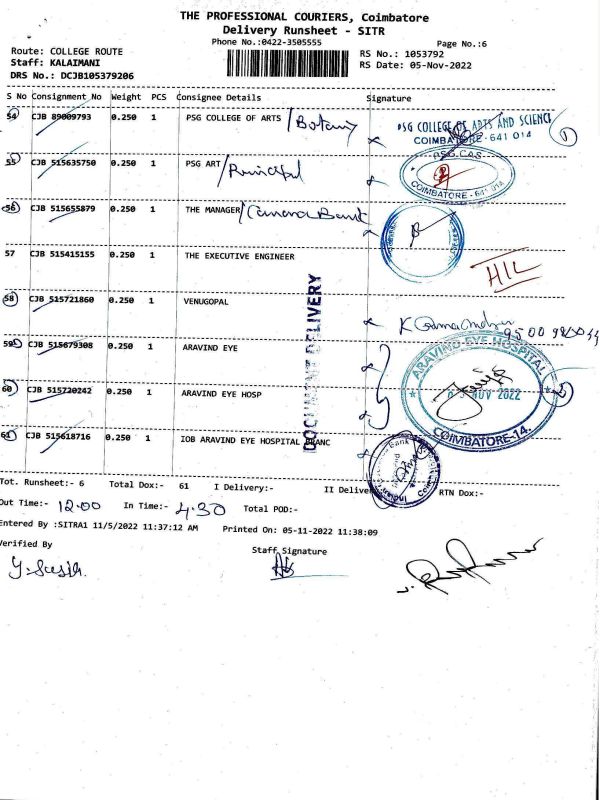 THE PROFESSIONAL COURIERS, Coimbatore
Delivery Runsheet - SITR
Phone No.:0422-3505555
Page No.:6
Route: COLLEGE ROUTE
RS No.: 1053792
Staff: KALAIMANI
RS Date: 05-Nov-2022
DRS No.: DCJB105379206
S No Consignment No Weight PCS Consignee Details Signature
54 CJB 89009793 0.250 1 PSG COLLEGE OF ARTS / Botany
PSG COLLEGE OF ARTS AND SCIENCE
COIMBATORE - 641 014
1
55 CJB 515635750 0.250 1 PSG ART / Principal
PSG CAS
COIMBATORE - 641 014
56 CJB 515655879 0.250 1 THE MANAGER / Canara Bank
57 CJB 515415155 0.250 1 THE EXECUTIVE ENGINEER
HIL
58 CJB 515721860 0.250 1 VENUGOPAL
DOCUMENT DELIVERY
59 CJB 515679308 0.250 1 ARAVIND EYE
ARAVIND EYE HOSPITAL
NOV 2022
COIMBATORE-14.
2
60 CJB 515720242 0.250 1 ARAVIND EYE HOSP
61 CJB 515618716 0.250 1 IOB ARAVIND EYE HOSPITAL BRANC
Tot. Runsheet:- 6 Total Dox:- 61 I Delivery:- II Delivery RTN Dox:-
Out Time:- 12.00 In Time:- 4.30 Total POD:-
Entered By :SITRA1 11/5/2022 11:37:12 AM Printed On: 05-11-2022 11:38:09
Verified By
Staff Signature